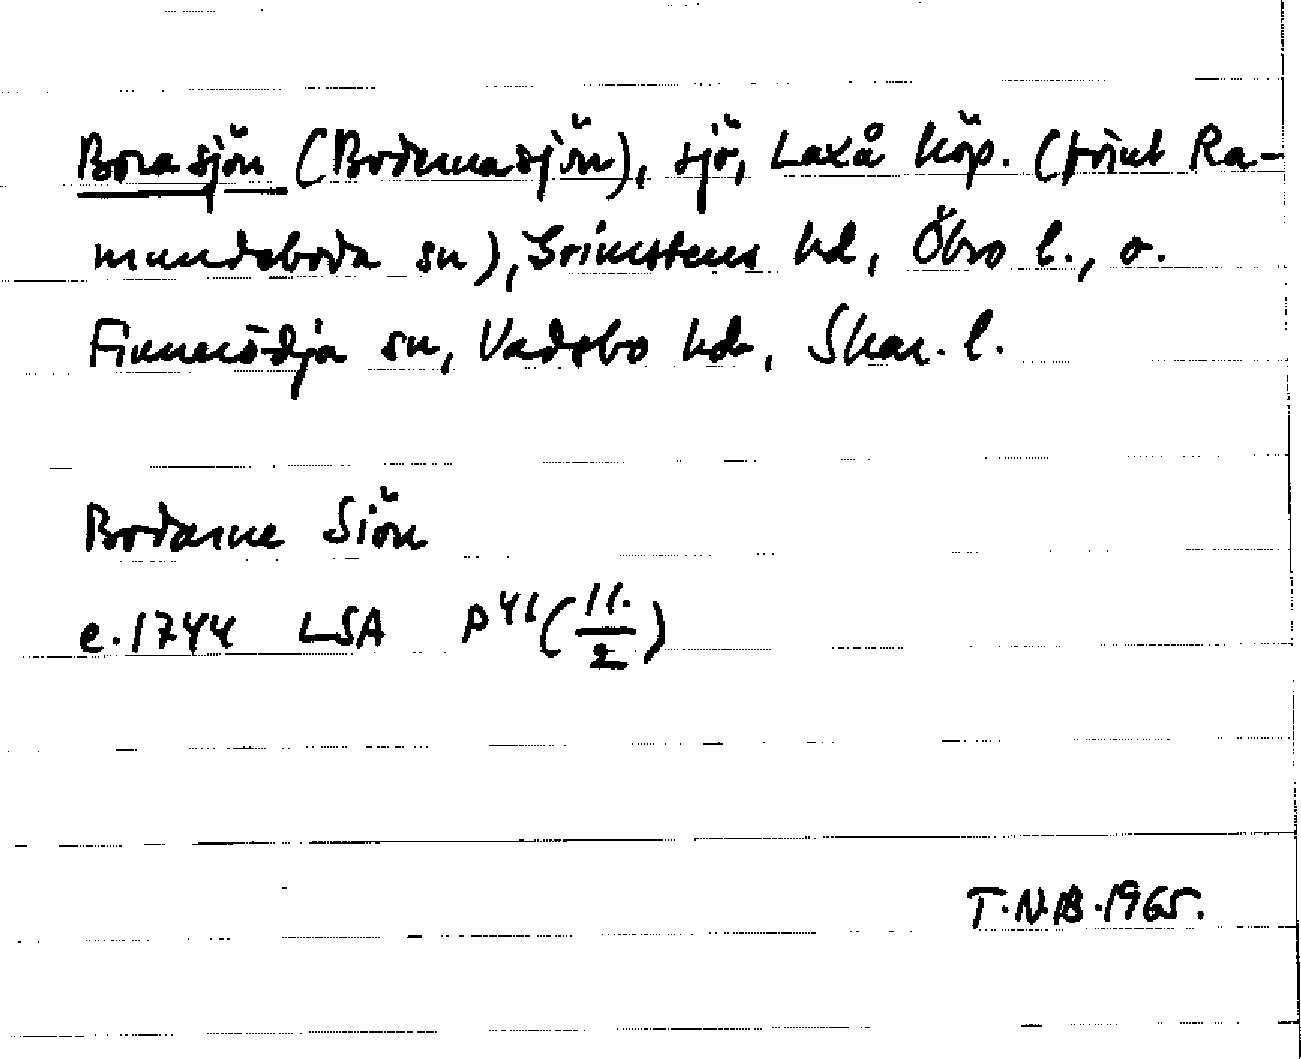 Borasjön (Bodernasjön), sjö, Laxå köp. (förut Ra-
mundeboda sn), Grimstens hd, Öbro l., o.
Finnerödja sn, Vadsbo hd, Skar. l.
Bodarne Siön
e. 1744 LSA P41 (11./2)
T.N.B. 1965.